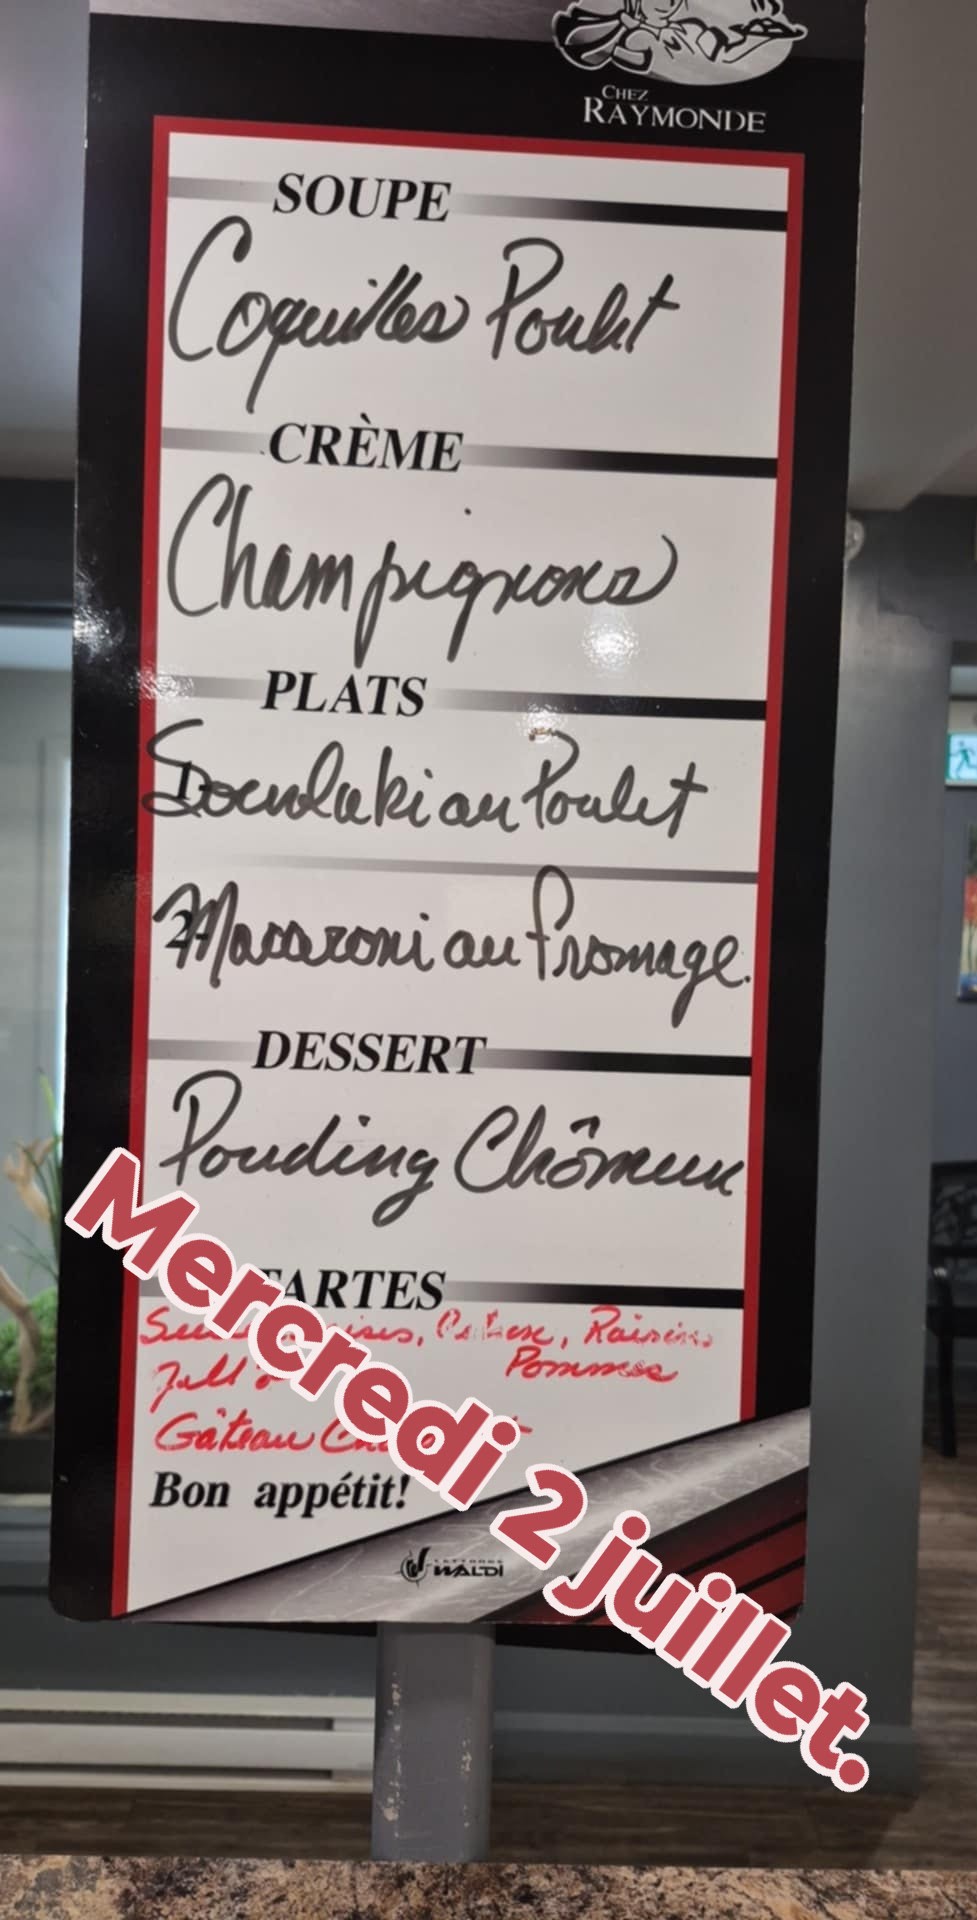 CHEZ
RAYMONDE
SOUPE
Coquilles Poulet
CRÈME
Champignons
PLATS
1- Souvlaki au Poulet
2- Macaroni au fromage.
DESSERT
Pouding Chômeur
TARTES
Raisins
Pommes
Gâteau
Bon appétit!
WALDI
Mercredi 2 juillet.